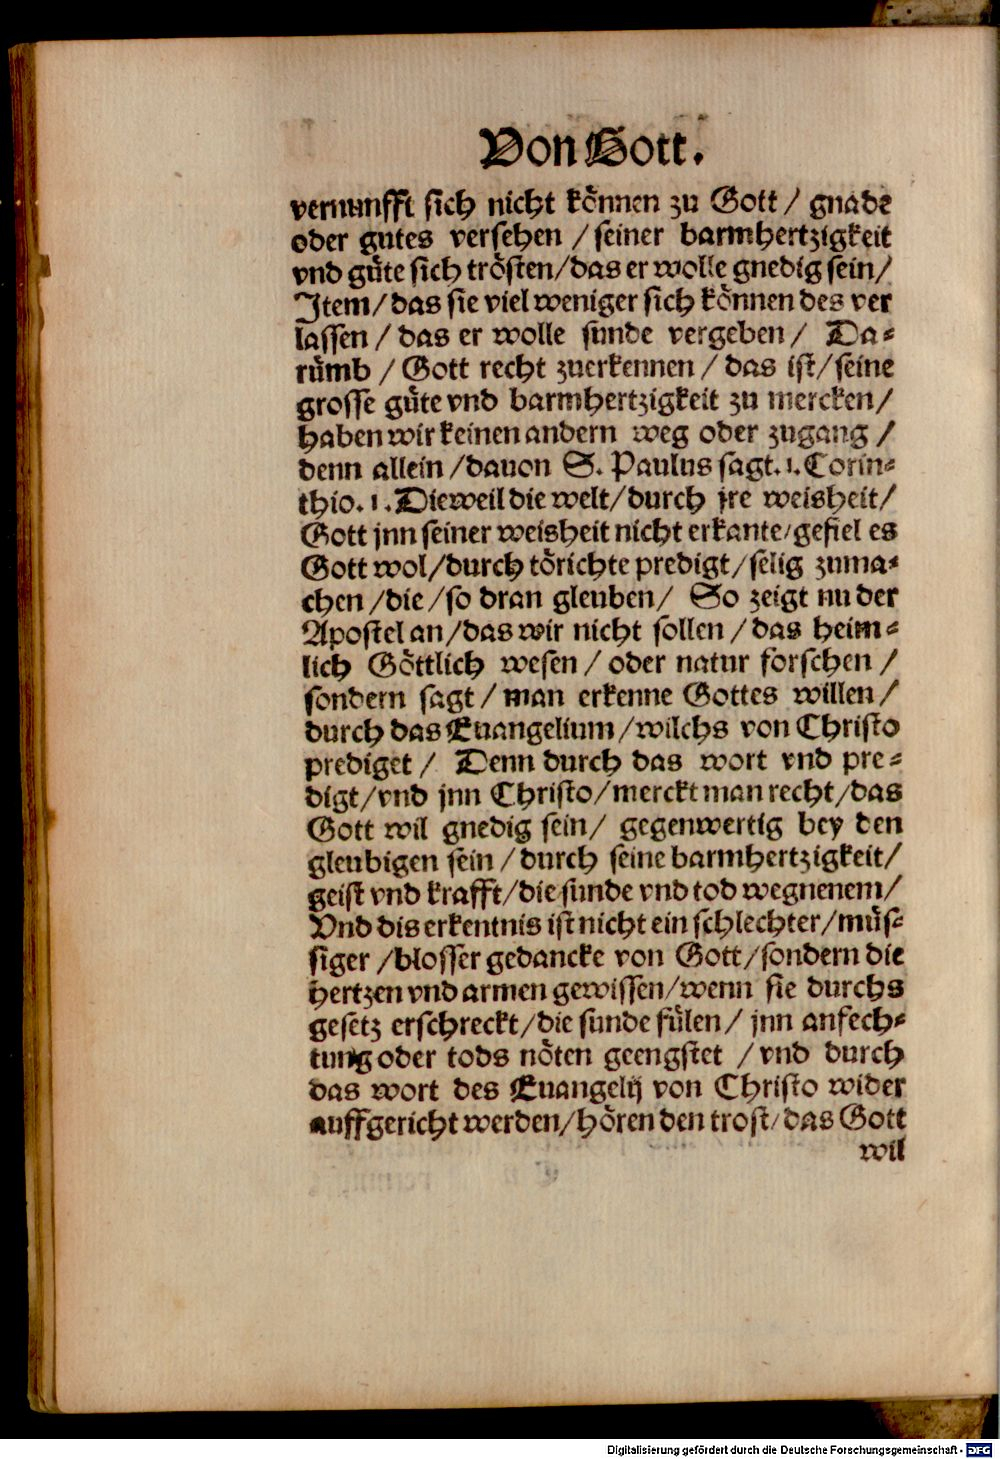 Von Gott.
vernunfft sich nicht können zu Gott / gnade
oder gutes versehen / seiner barmhertzigkeit
vnd güte sich trösten/das er wolle gnedig sein/
Item/das sie viel weniger sich können des ver
lassen / das er wolle sunde vergeben / Da-
rümb / Gott recht zuerkennen / das ist/seine
grosse güte vnd barmhertzigkeit zu mercken/
haben wir keinen andern weg oder zugang /
denn allein /dauon S. Paulus sagt.1.Corin-
thio.1.Dieweil die welt/durch jre weisheit/
Gott jnn seiner weisheit nicht erkante/gefiel es
Gott wol/durch törichte predigt/selig zuma-
chen /die/so dran gleuben/ So zeigt nu der
Apostel an/das wir nicht sollen /das heim-
lich Göttlich wesen / oder natur forschen /
sondern sagt / man erkenne Gottes willen/
durch das Euangelium/wilchs von Christo
prediget / Denn durch das wort vnd pre-
digt/vnd jnn Christo/merckt man recht/das
Gott wil gnedig sein/ gegenwertig bey den
gleubigen sein /durch seine barmhertzigkeit/
geist vnd krafft/die sunde vnd tod wegnenem/
Vnd dis erkentnis ist nicht ein schlechter/müs-
siger /blosser gedancke von Gott/sondern die
hertzen vnd armen gewissen/wenn sie durchs
gesetz erschreckt/die sunde fülen/ jnn anfech-
tung oder tods nöten geengstet /vnd durch
das wort des Euangelij von Christo wider
auffgericht werden/hören den trost/das Gott
wil
Digitalisierung gefördert durch die Deutsche Forschungsgemeinschaft - DFG